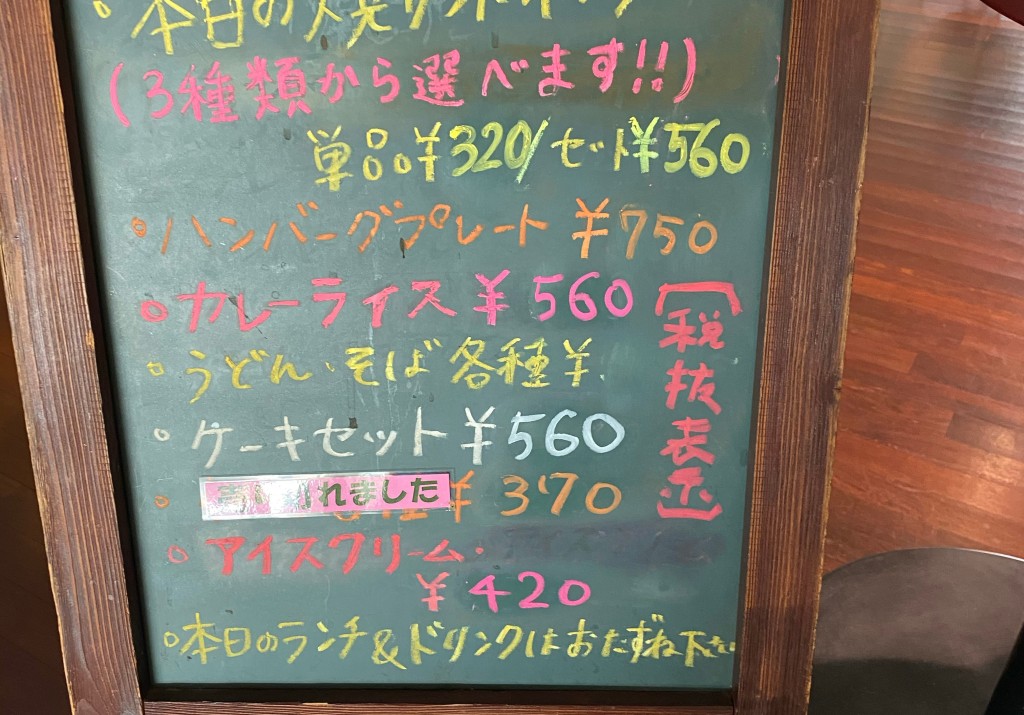 本日の
(3種類から選べます!!)
単品¥320/セット¥560
ハンバーグプレート ¥750
カレーライス ¥560
うどん・そば各種¥
ケーキセット ¥560
売り切れました ¥370
アイスクリーム・
¥420
本日のランチ&ドリンクはおたずね下さい
(税抜表示)